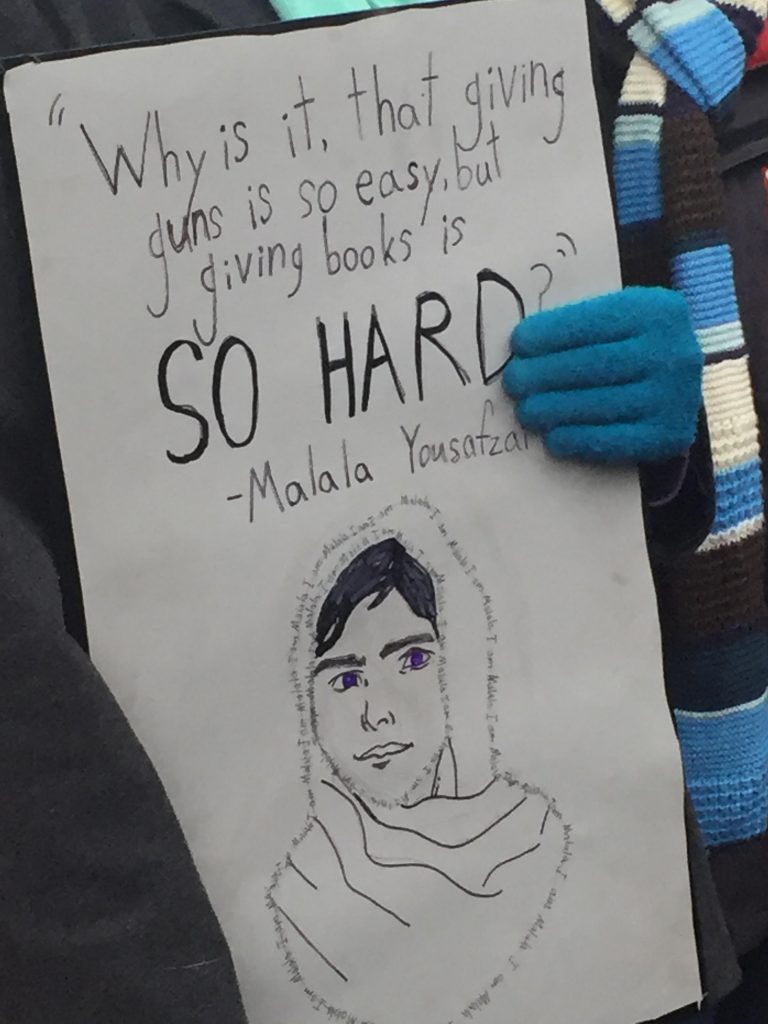 "Why is it, that giving
guns is so easy, but
giving books is
SO HARD?"
-Malala Yousafzai
I am Malala I am Malala I am Malala I am Malala